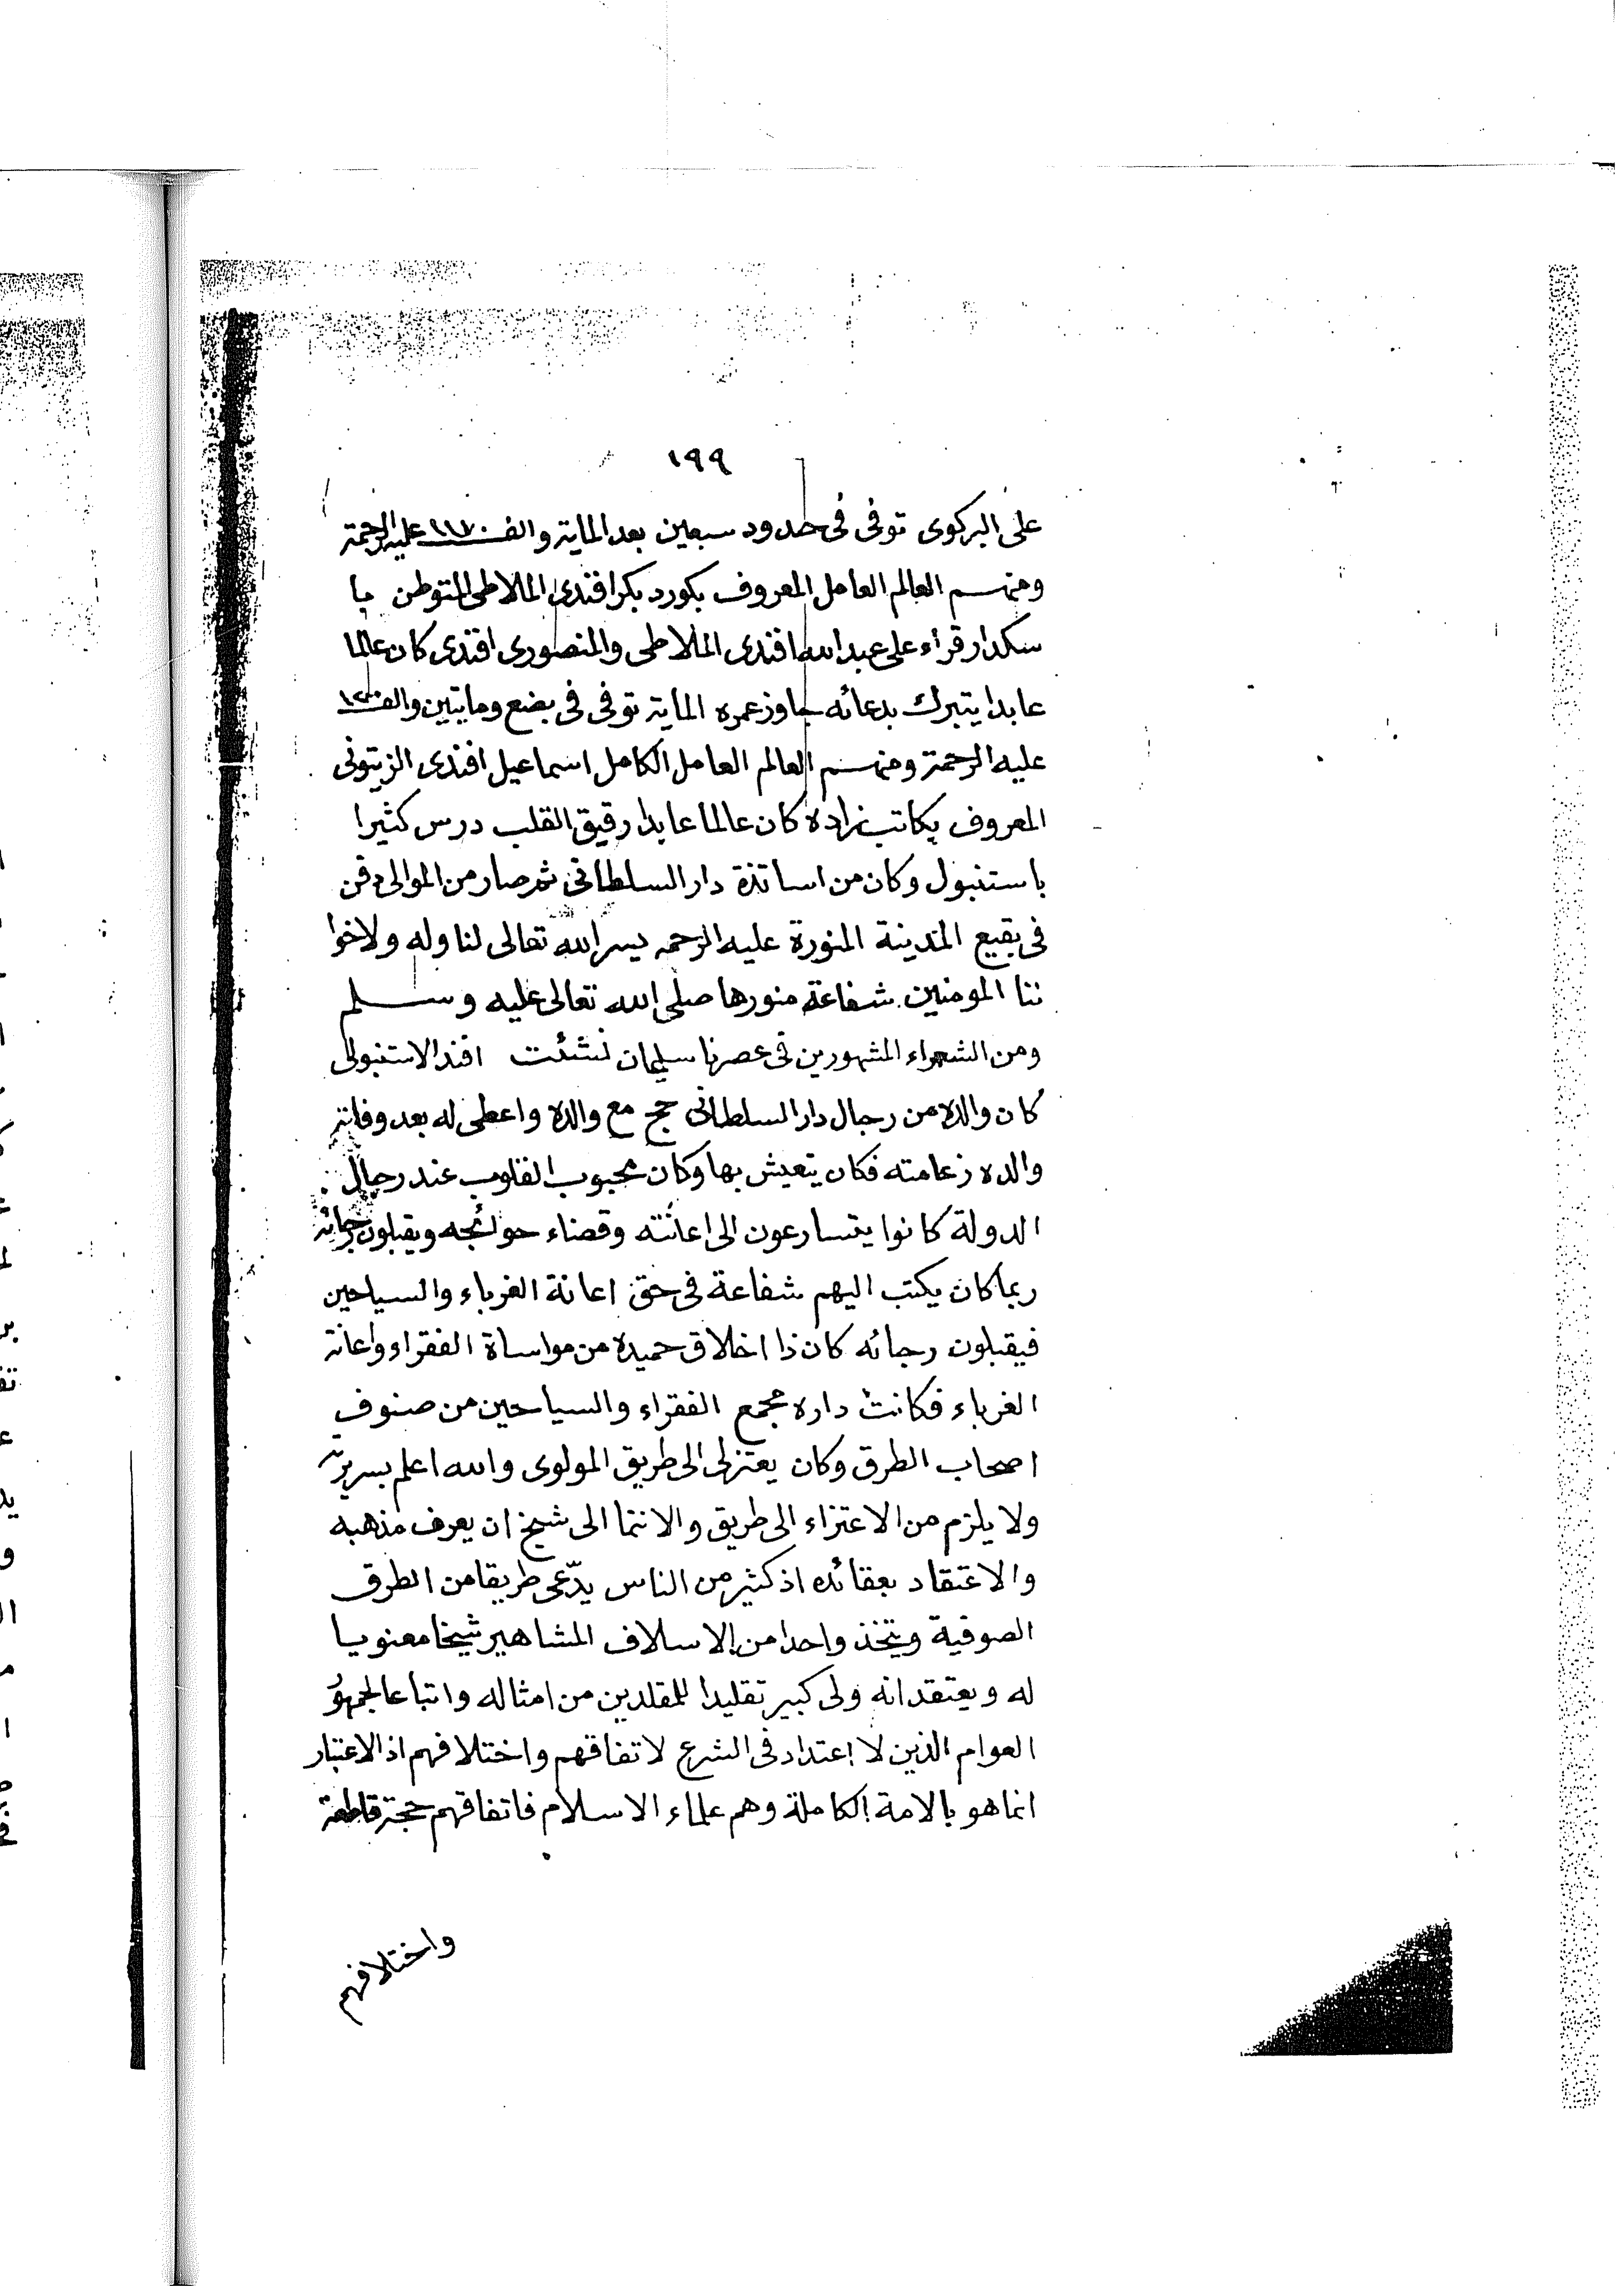 ١٩٩
على البركوى توفى فى حدود سبعين بعد الماية والف ١١٧٠ عليه الرحمة
ومنهم العالم العامل المعروف بكورد بكر افندى الملاطى المتوطن با
سكدار قراء على عبد الله افندى الملاطى والمنصورى افندى كان عالما
عابدا يتبرك بدعائه جاوز عمره الماية توفى فى بضع ومايتين والف ١٢٠٠
عليه الرحمة ومنهم العالم العامل الكامل اسماعيل افندى الزيتونى
المعروف بكاتب زاده كان عالما عابدا رقيق القلب درس كثيرا
باستنبول وكان من اساتذة دار السلطانى ثم صار من الموالى دفن
فى بقيع المدينة المنورة عليه الرحمه يسر الله تعالى لنا وله ولاخوا
ننا المومنين شفاعة منورها صلى الله تعالى عليه وسلم
ومن الشعراء المشهورين فى عصرنا سليمان نشئت افند الاستنبولى
كان والده من رجال دار السلطانى حج مع والده واعطى له بعد وفاته
والده زعامته فكان يتعيش بها وكان محبوب القلوب عند رجال
الدولة كانوا يتسارعون الى اعانته وقضاء حوائجه ويقبلون رجائه
ربما كان يكتب اليهم شفاعة فى حق اعانة الغرباء والسياحين
فيقبلون رجائه كان ذا اخلاق حميده من مواساة الفقراء واعانة
الغرباء فكانت داره مجمع الفقراء والسياحين من صنوف
اصحاب الطرق وكان يعتزلى الى طريق المولوى والله اعلم بسريرته
ولا يلزم من الاعتزاء الى طريق والانتما الى شيخ ان يعرف مذهبه
والاعتقاد بعقائده اذ كثير من الناس يدّعى طريقا من الطرق
الصوفية ويتخذ واحدا من الاسلاف المشاهير شيخا معنويا
له ويعتقد انه ولى كبير تقليدا للمقلدين من امثاله واتباعا لجمهور
العوام الذين لا اعتداد فى الشرع لاتفاقهم واختلافهم اذ الاعتبار
انما هو بالامة الكاملة وهم علماء الاسلام فاتفاقهم حجة قاطعة
واختلافهم